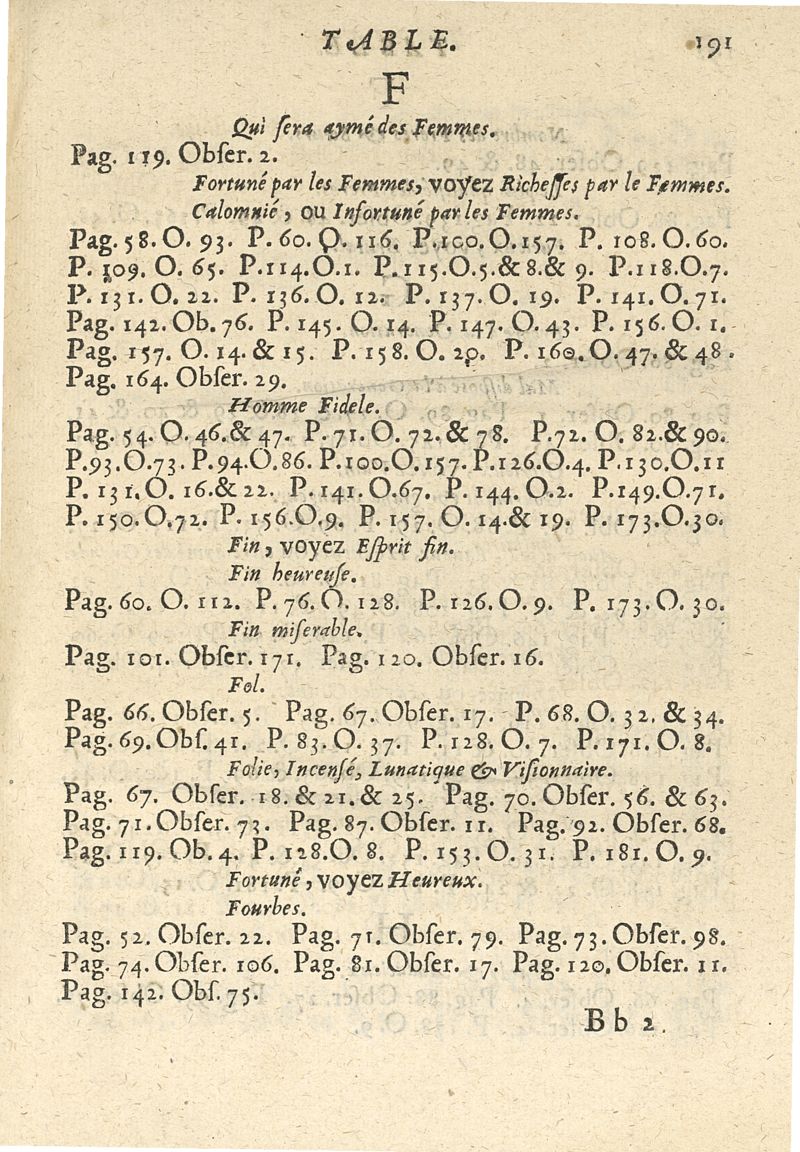 TABLE. 191
F
Qui ſera aymé des Femmes.
Pag. 119. Obſer. 2.
Fortuné par les Femmes, voyez Richeſſes par le Femmes.
Calomnié, ou Infortuné par les Femmes.
Pag. 58. O. 93. P. 60. O. 116. P.100.O.157. P. 108. O. 60.
P. 109. O. 65. P.114.O.1. P.115.O.5.& 8.& 9. P.118.O.7.
P. 131. O. 22. P. 136. O. 12. P. 137. O. 19. P. 141. O. 71.
Pag. 142. Ob. 76. P. 145. O. 14. P. 147. O. 43. P. 156. O. 1.
Pag. 157. O. 14. & 15. P. 158. O. 20. P. 160. O. 47. & 48.
Pag. 164. Obſer. 29.
Homme Fidele.
Pag. 54. O. 46.& 47. P. 71. O. 72. & 78. P.72. O. 82.& 90.
P.93.O.73. P.94.O.86. P.100.O.157. P.126.O.4. P.130.O.11
P. 131.O. 16.& 22. P. 141. O.67. P. 144. O.2. P.149.O.71.
P. 150. O.72. P. 156.O.9. P. 157. O. 14.& 19. P. 173.O.30.
Fin, voyez Eſprit fin.
Fin heureuſe.
Pag. 60. O. 112. P. 76. O. 128. P. 126. O. 9. P. 173. O. 30.
Fin miſerable.
Pag. 101. Obſer. 171. Pag. 120. Obſer. 16.
Fol.
Pag. 66. Obſer. 5. Pag. 67. Obſer. 17. P. 68. O. 32. & 34.
Pag. 69. Obſ. 41. P. 83. O. 37. P. 128. O. 7. P. 171. O. 8.
Folie, Incenſé, Lunatique & Viſionnaire.
Pag. 67. Obſer. 18. & 21. & 25. Pag. 70. Obſer. 56. & 63.
Pag. 71. Obſer. 73. Pag. 87. Obſer. 11. Pag. 92. Obſer. 68.
Pag. 119. Ob. 4. P. 128. O. 8. P. 153. O. 31. P. 181. O. 9.
Fortuné, voyez Heureux.
Fourbes.
Pag. 52. Obſer. 22. Pag. 71. Obſer. 79. Pag. 73. Obſer. 98.
Pag. 74. Obſer. 106. Pag. 81. Obſer. 17. Pag. 120. Obſer. 11.
Pag. 142. Obſ. 75.
Bb 2.